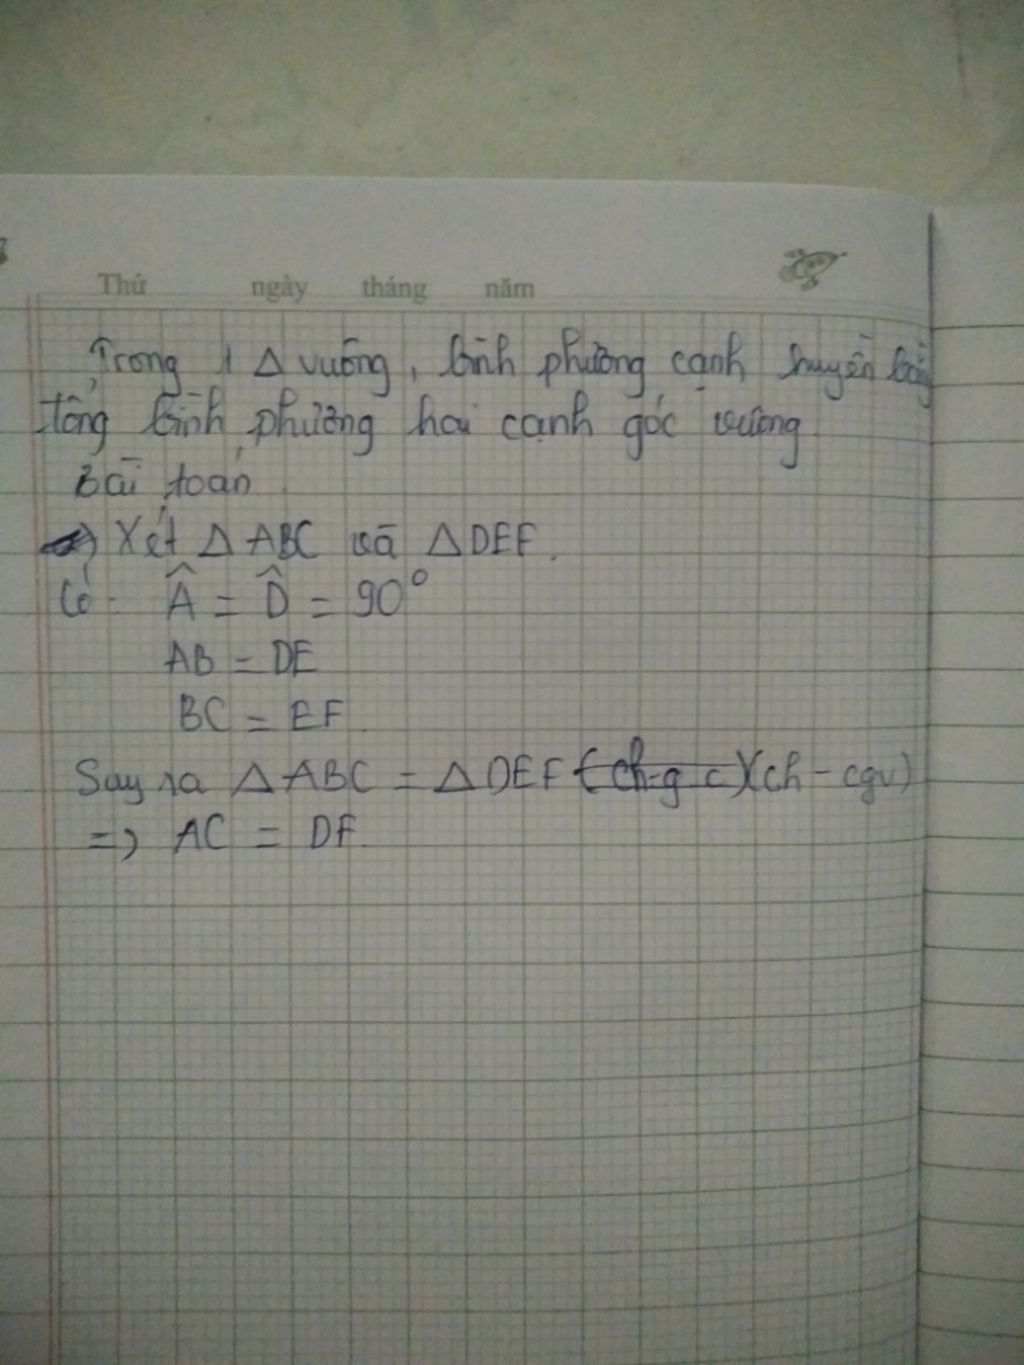 Thứ ngày tháng năm
Trong 1 Δ vuông, bình phương cạnh huyền bằng
tổng bình phương hai cạnh góc vuông
Bài toán
Xét Δ ABC và Δ DEF.
Có Â = D̂ = 90°
AB = DE
BC = EF
Suy ra Δ ABC = Δ DEF (ch-g c)(ch - cgv)
=> AC = DF.